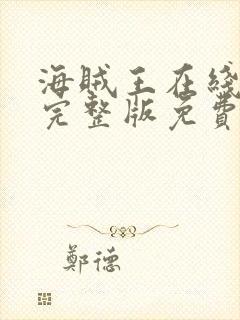 海贼王在綫
完整版免費
鄭德